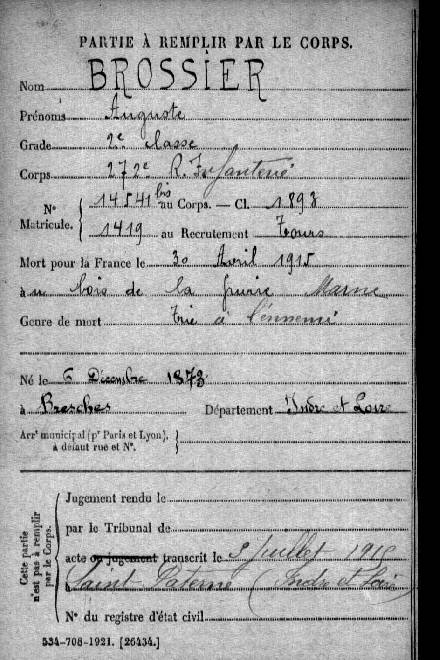 PARTIE À REMPLIR PAR LE CORPS.
Nom BROSSIER
Prénoms Auguste
Grade 2e classe
Corps 272e R. Infanterie
N° Matricule. 14541 bis au Corps. — Cl. 1893
1419 au Recrutement Tours
Mort pour la France le 30 Avril 1915
à u bois de la Marne
Genre de mort Tué à l'ennemi
Né le 6 Décembre 1873
à Bresches Département Indre et Loire
Arrt municipal (pr Paris et Lyon), à défaut rue et N°.
Cette partie n'est pas à remplir par le Corps.
Jugement rendu le
par le Tribunal de
acte ou jugement transcrit le Juillet 1915
Saint Paterne (Indre et Loire)
N° du registre d'état civil
534-708-1921. [26434.]